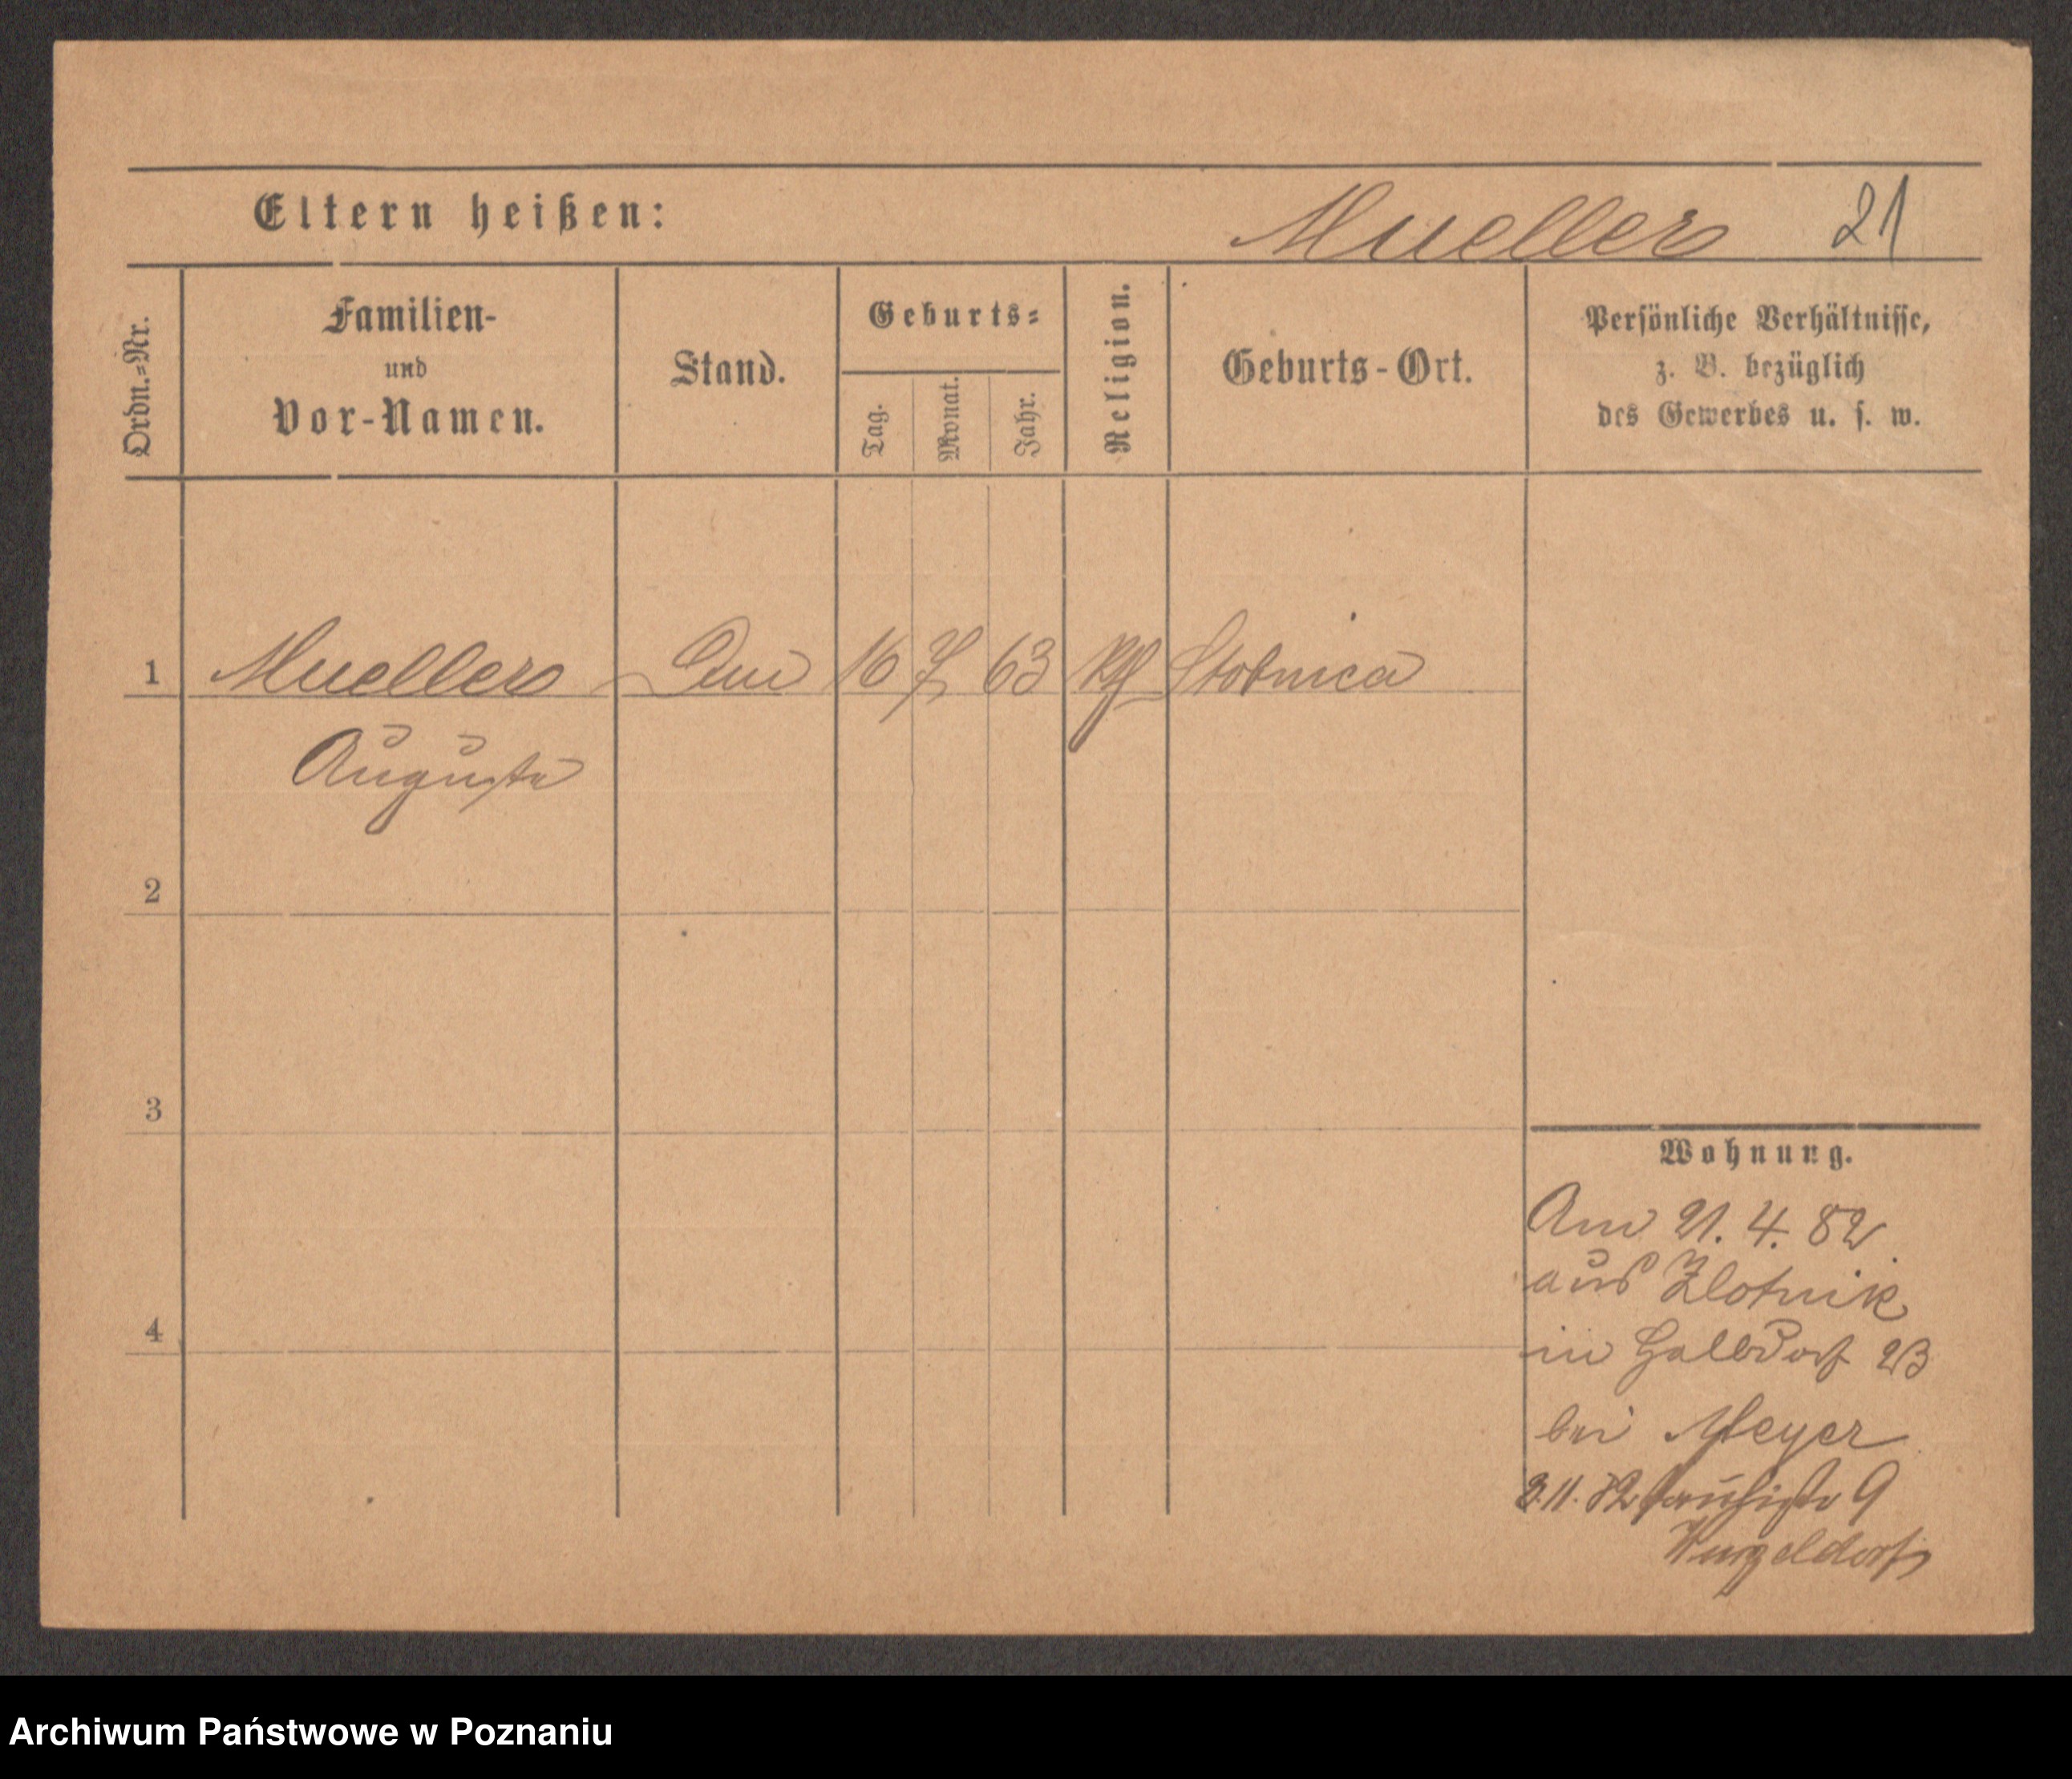 Eltern heißen: Mueller 21
Ordn.=Nr.
Familien-
und
Vor-Namen.
Stand.
Geburts=
Tag.
Monat.
Jahr.
Religion.
Geburts-Ort.
Persönliche Verhältnisse,
z. B. bezüglich
des Gewerbes u. s. w.
1 Mueller 16 7 63 Stobnica
Auguste
2
3
4
Wohnung.
Am 21. 4. 82
aus Zlotnik
in Halbdorf 23
bei Meyer
11. 82 9